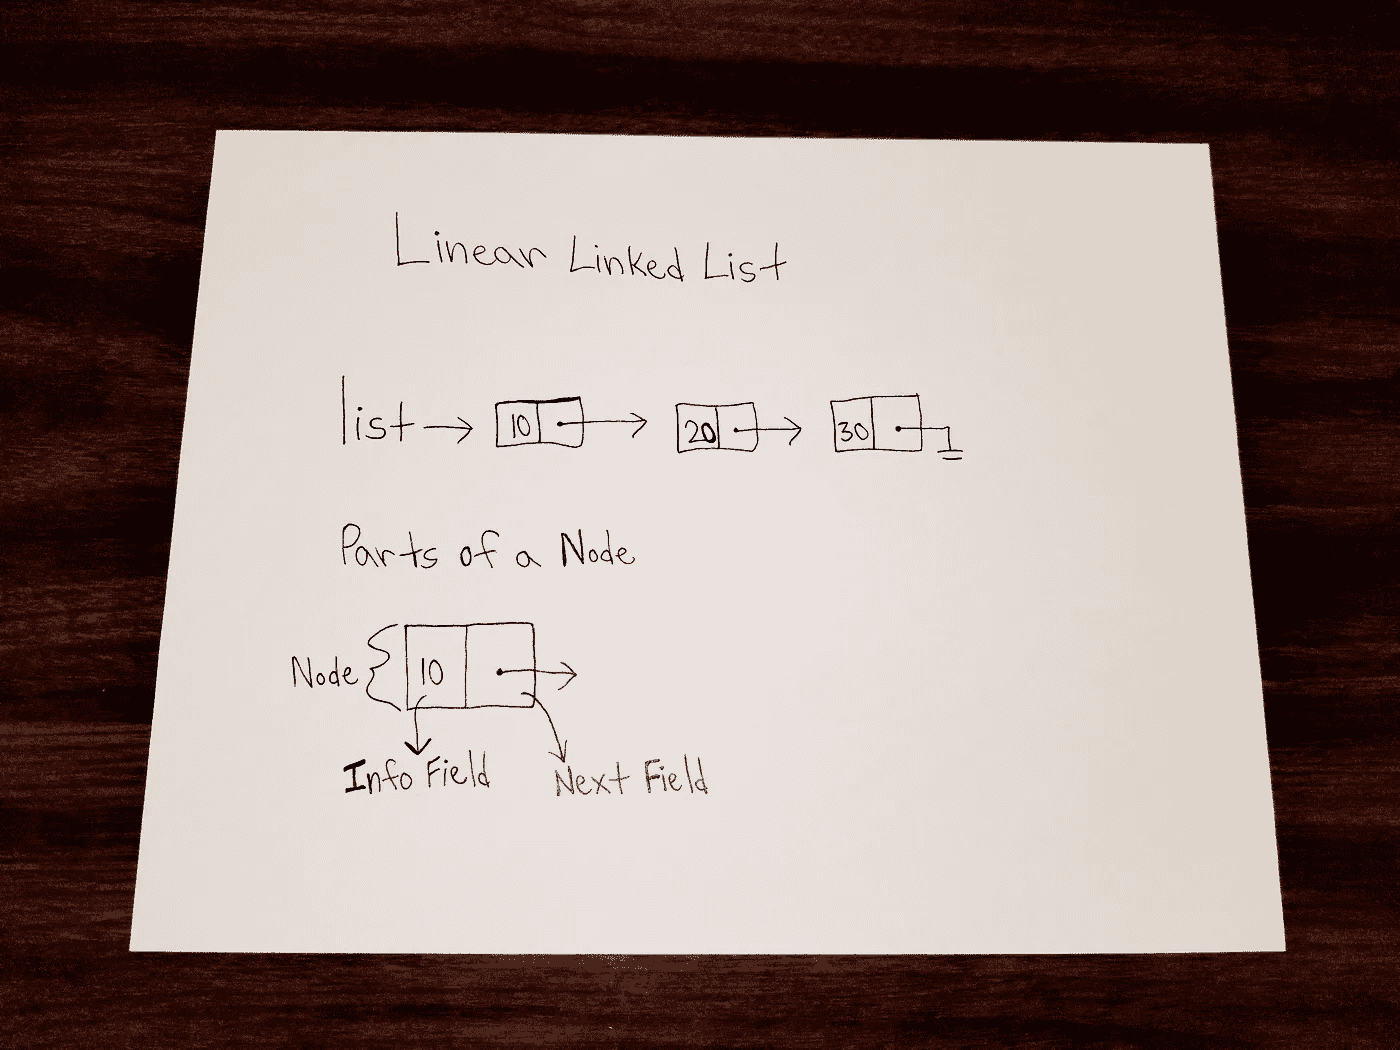 Linear Linked List
list 10 20 30
Parts of a Node
Node 10
Info Field Next Field